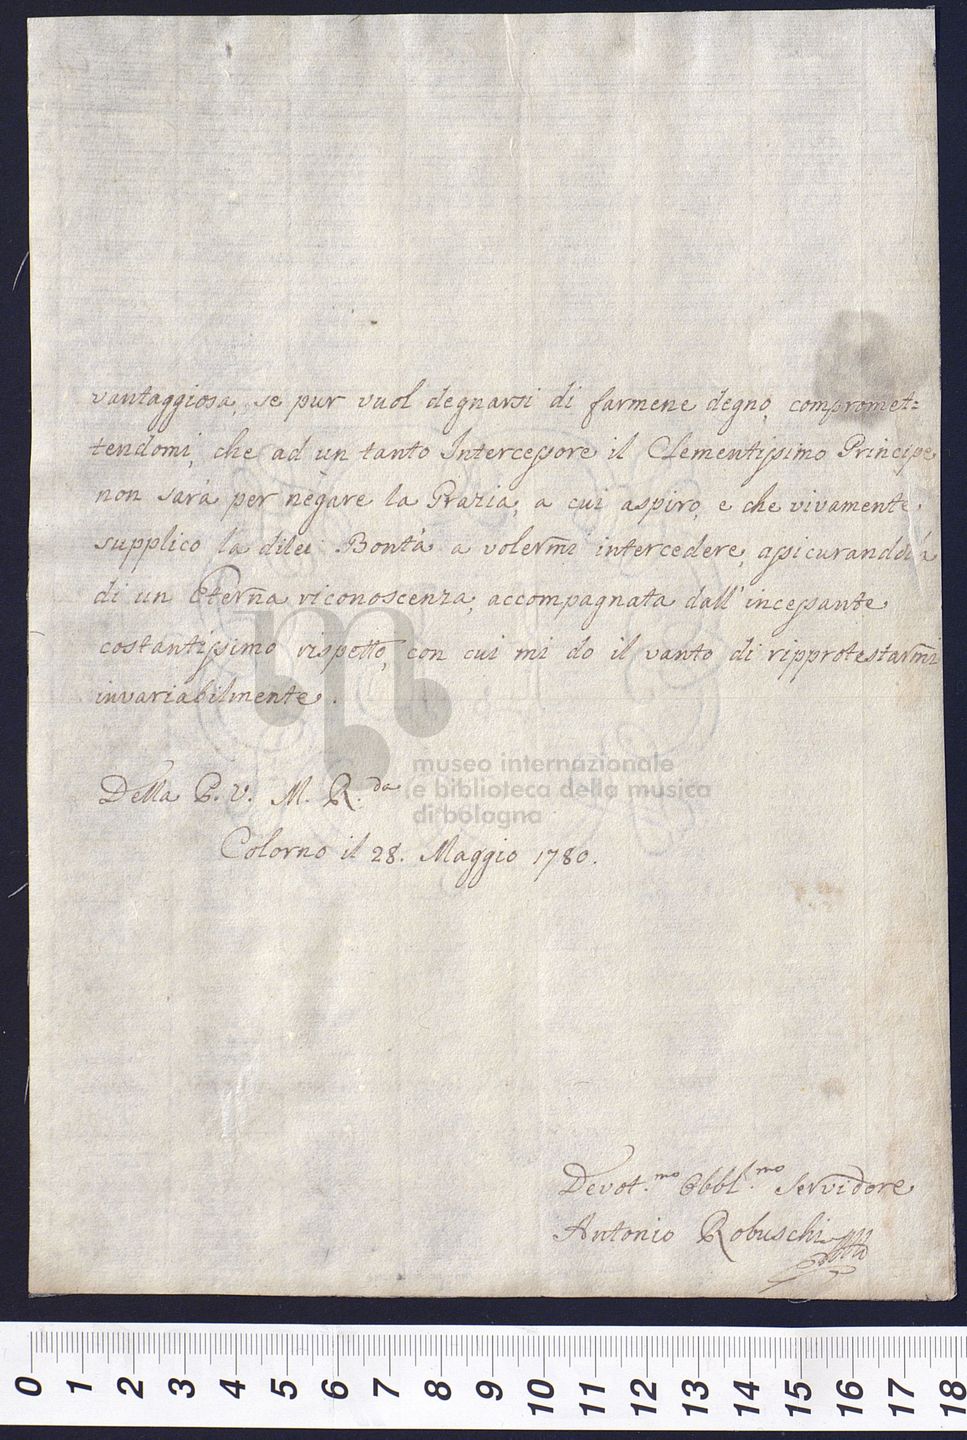 vantaggiosa, se pur vuol degnarsi di farmene degno, compromet=
tendomi, che ad un tanto Intercessore il Clementissimo Principe
non sarà per negare la Grazia, a cui aspiro, e che vivamente
supplico la dilei Bontà a volermi intercedere, assicurandola
di un Eterna riconoscenza, accompagnata dall' incessante
costantissimo rispetto, con cui mi do il vanto di ripprotestarmi
invariabilmente.
Della P. V. M. R.da
Colorno il 28. Maggio 1780.
Devot.mo Obbl.mo Servidore
Antonio Robuschi
museo internazionale
e biblioteca della musica
di bologna
0 1 2 3 4 5 6 7 8 9 10 11 12 13 14 15 16 17 18